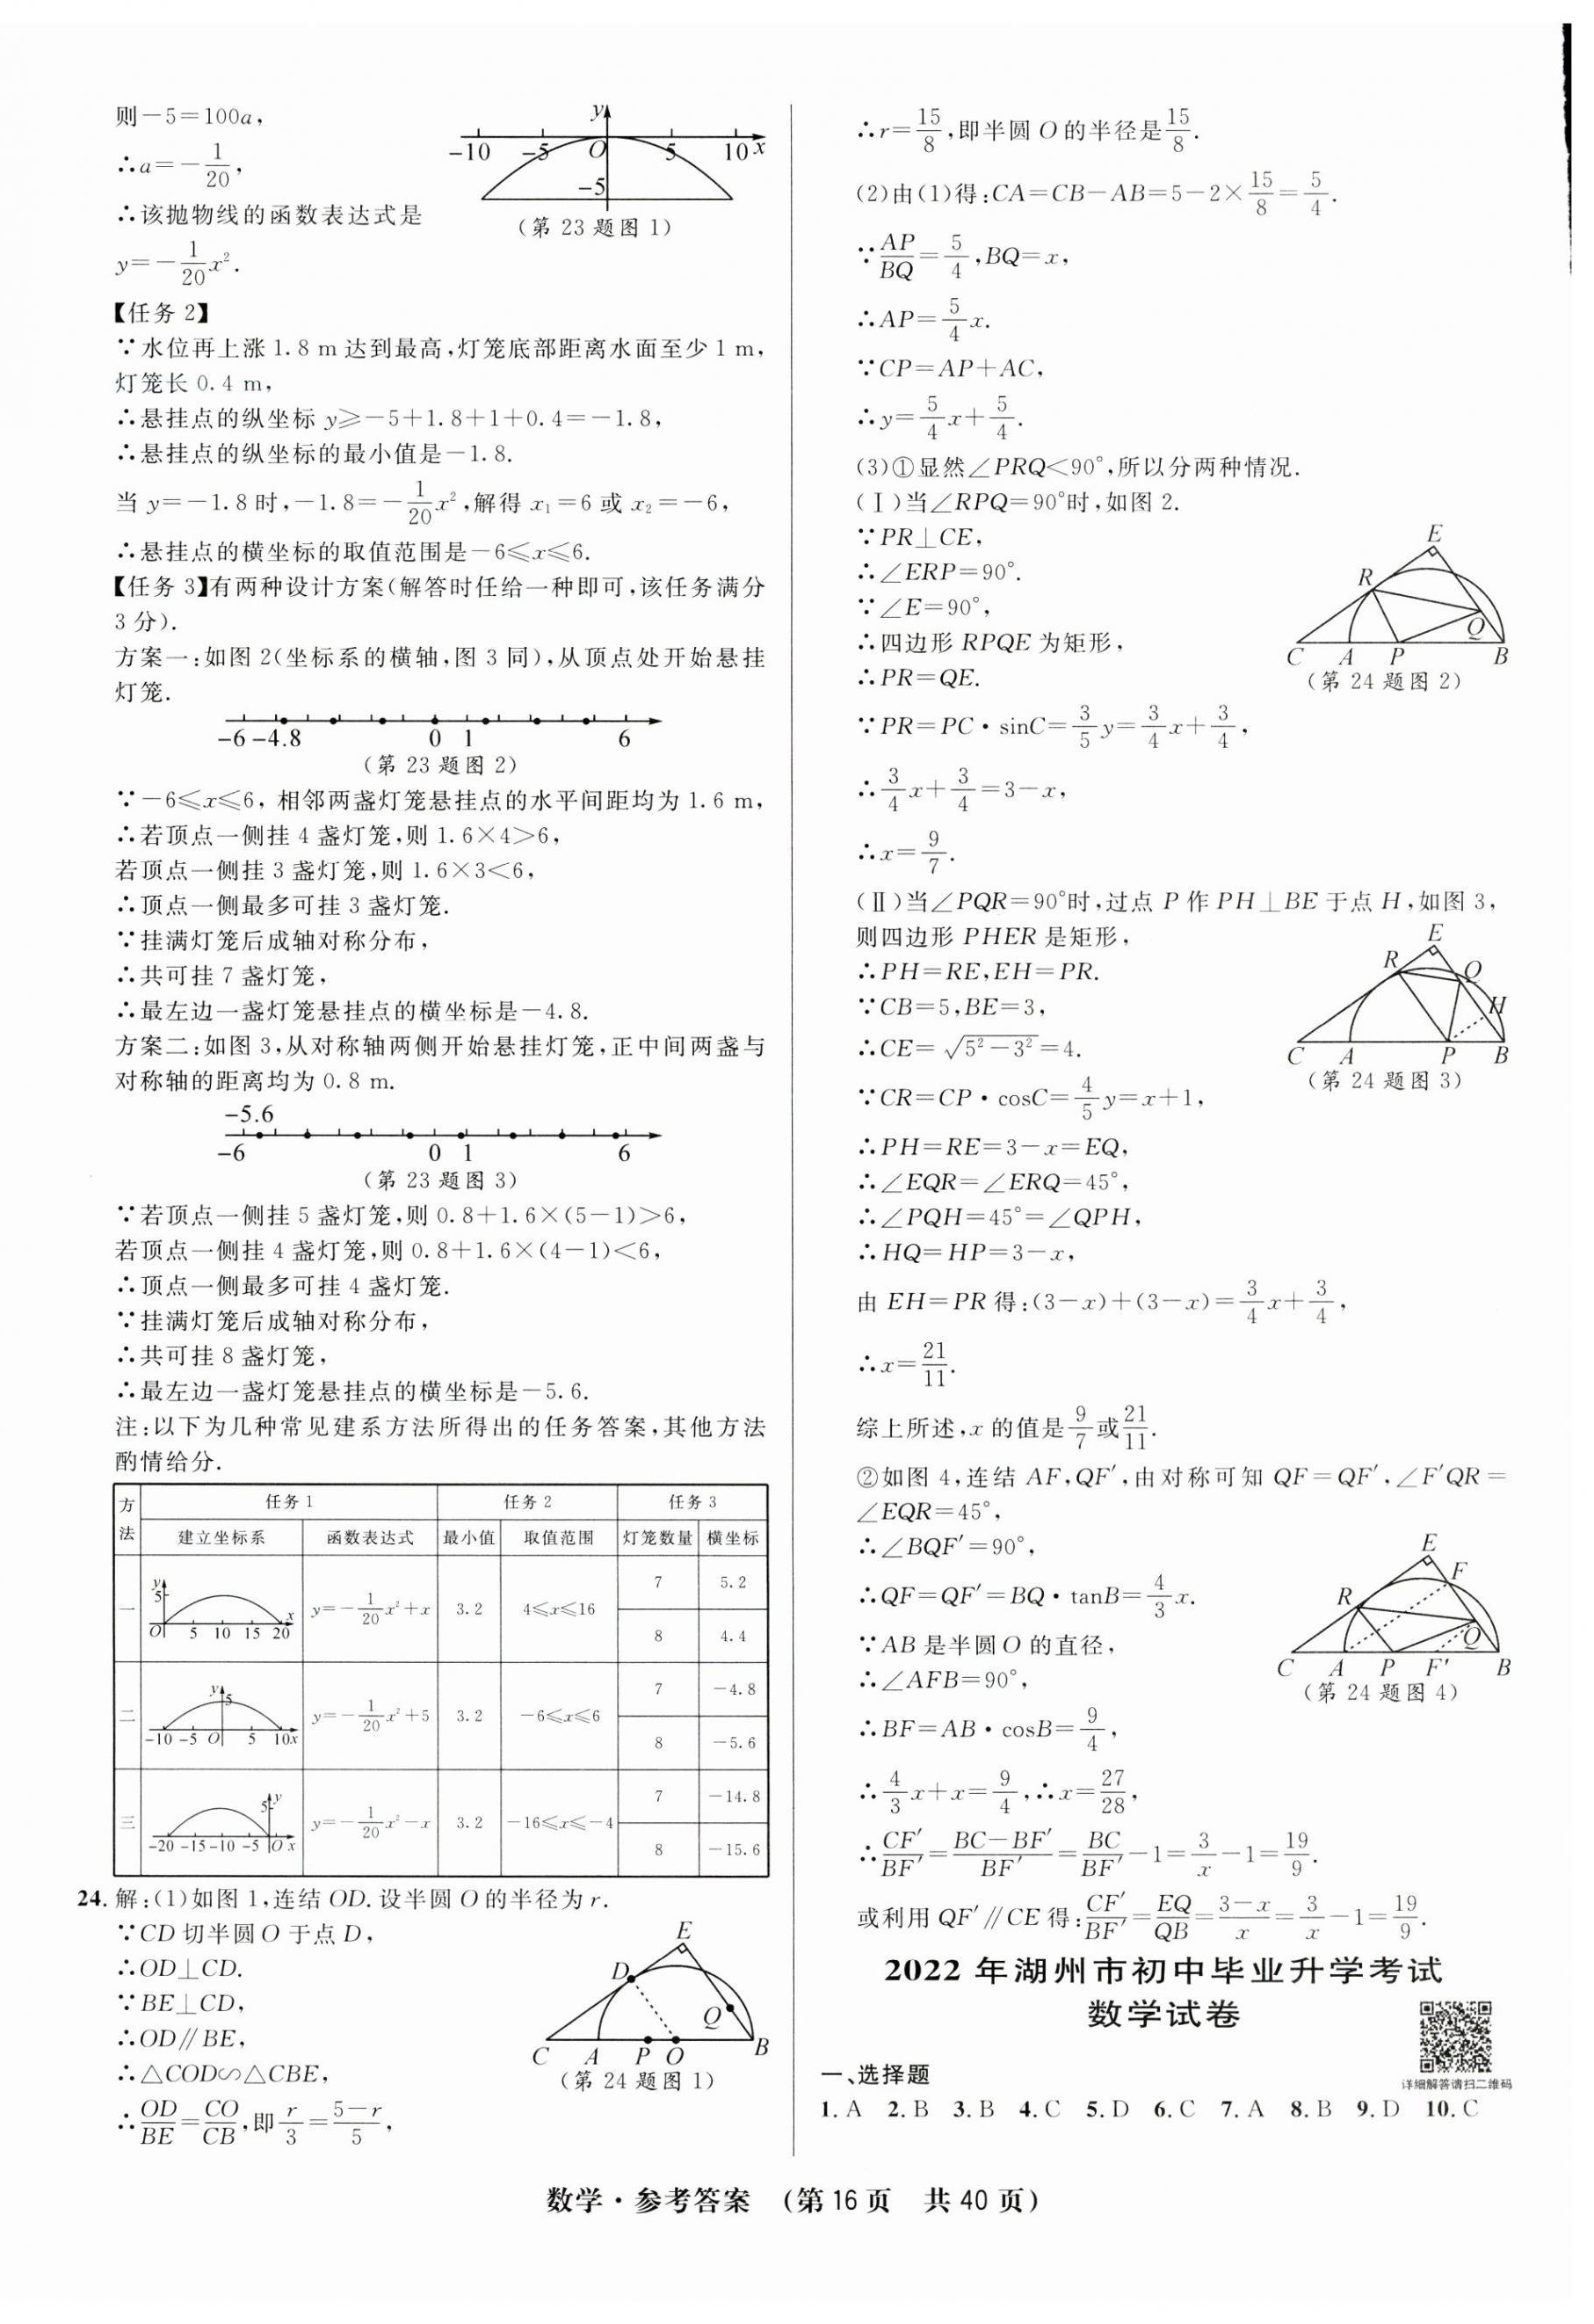 则－5＝100a，
∴a＝－1/20，
∴该抛物线的函数表达式是
y＝－1/20x²．
y
-10 -5 O 5 10 x
-5
（第 23 题图 1）
【任务 2】
∵水位再上涨 1.8 m 达到最高，灯笼底部距离水面至少 1 m，
灯笼长 0.4 m，
∴悬挂点的纵坐标 y≥－5＋1.8＋1＋0.4＝－1.8，
∴悬挂点的纵坐标的最小值是－1.8．
当 y＝－1.8 时，－1.8＝－1/20x²，解得 x₁＝6 或 x₂＝－6，
∴悬挂点的横坐标的取值范围是－6≤x≤6．
【任务 3】有两种设计方案（解答时任给一种即可，该任务满分
3 分）．
方案一：如图 2（坐标系的横轴，图 3 同），从顶点处开始悬挂
灯笼．
-6 -4.8 0 1 6
（第 23 题图 2）
∵－6≤x≤6，相邻两盏灯笼悬挂点的水平间距均为 1.6 m，
∴若顶点一侧挂 4 盏灯笼，则 1.6×4＞6，
若顶点一侧挂 3 盏灯笼，则 1.6×3＜6，
∴顶点一侧最多可挂 3 盏灯笼．
∵挂满灯笼后成轴对称分布，
∴共可挂 7 盏灯笼，
∴最左边一盏灯笼悬挂点的横坐标是－4.8．
方案二：如图 3，从对称轴两侧开始悬挂灯笼，正中间两盏与
对称轴的距离均为 0.8 m．
-5.6
-6 0 1 6
（第 23 题图 3）
∵若顶点一侧挂 5 盏灯笼，则 0.8＋1.6×（5－1）＞6，
若顶点一侧挂 4 盏灯笼，则 0.8＋1.6×（4－1）＜6，
∴顶点一侧最多可挂 4 盏灯笼．
∵挂满灯笼后成轴对称分布，
∴共可挂 8 盏灯笼，
∴最左边一盏灯笼悬挂点的横坐标是－5.6．
注：以下为几种常见建系方法所得出的任务答案，其他方法
酌情给分．
方法 任务 1 任务 2 任务 3
建立坐标系 函数表达式 最小值 取值范围 灯笼数量 横坐标
一 y 5 O 5 10 15 20 x y＝－1/20x²＋x 3.2 4≤x≤16 7 5.2
8 4.4
二 y 5 -10 -5 O 5 10x y＝－1/20x²＋5 3.2 －6≤x≤6 7 －4.8
8 －5.6
三 y 5 -20 -15 -10 -5 O x y＝－1/20x²－x 3.2 －16≤x≤－4 7 －14.8
8 －15.6
24. 解：（1）如图 1，连结 OD．设半圆 O 的半径为 r．
∵CD 切半圆 O 于点 D，
∴OD⊥CD．
∵BE⊥CD，
∴OD∥BE，
∴△COD∽△CBE，
∴OD/BE＝CO/CB，即 r/3＝（5－r）/5，
E
D
Q
C A P O B
（第 24 题图 1）
∴r＝15/8，即半圆 O 的半径是15/8．
（2）由（1）得：CA＝CB－AB＝5－2×15/8＝5/4．
∵AP/BQ＝5/4，BQ＝x，
∴AP＝5/4x．
∵CP＝AP＋AC，
∴y＝5/4x＋5/4．
（3）①显然∠PRQ＜90°，所以分两种情况．
（Ⅰ）当∠RPQ＝90°时，如图 2．
∵PR⊥CE，
∴∠ERP＝90°．
∵∠E＝90°，
∴四边形 RPQE 为矩形，
∴PR＝QE．
E
R
Q
C A P B
（第 24 题图 2）
∵PR＝PC·sinC＝3/5y＝3/4x＋3/4，
∴3/4x＋3/4＝3－x，
∴x＝9/7．
（Ⅱ）当∠PQR＝90°时，过点 P 作 PH⊥BE 于点 H，如图 3，
则四边形 PHER 是矩形，
∴PH＝RE，EH＝PR．
∵CB＝5，BE＝3，
∴CE＝√(5²－3²)＝4．
∵CR＝CP·cosC＝4/5y＝x＋1，
E
R
Q
H
C A P B
（第 24 题图 3）
∴PH＝RE＝3－x＝EQ，
∴∠EQR＝∠ERQ＝45°，
∴∠PQH＝45°＝∠QPH，
∴HQ＝HP＝3－x，
由 EH＝PR 得：（3－x）＋（3－x）＝3/4x＋3/4，
∴x＝21/11．
综上所述，x 的值是9/7或21/11．
②如图 4，连结 AF，QF′，由对称可知 QF＝QF′，∠F′QR＝
∠EQR＝45°，
∴∠BQF′＝90°，
∴QF＝QF′＝BQ·tanB＝4/3x．
∵AB 是半圆 O 的直径，
∴∠AFB＝90°，
∴BF＝AB·cosB＝9/4，
E
F
R
Q
C A P F′ B
（第 24 题图 4）
∴4/3x＋x＝9/4，∴x＝27/28，
∴CF′/BF′＝（BC－BF′）/BF′＝BC/BF′－1＝3/x－1＝19/9．
或利用 QF′∥CE 得：CF′/BF′＝EQ/QB＝（3－x）/x＝3/x－1＝19/9．
2022 年湖州市初中毕业升学考试
数学试卷
详细解答请扫二维码
一、选择题
1. A 2. B 3. B 4. C 5. D 6. C 7. A 8. B 9. D 10. C
数学·参考答案 （第 16 页 共 40 页）